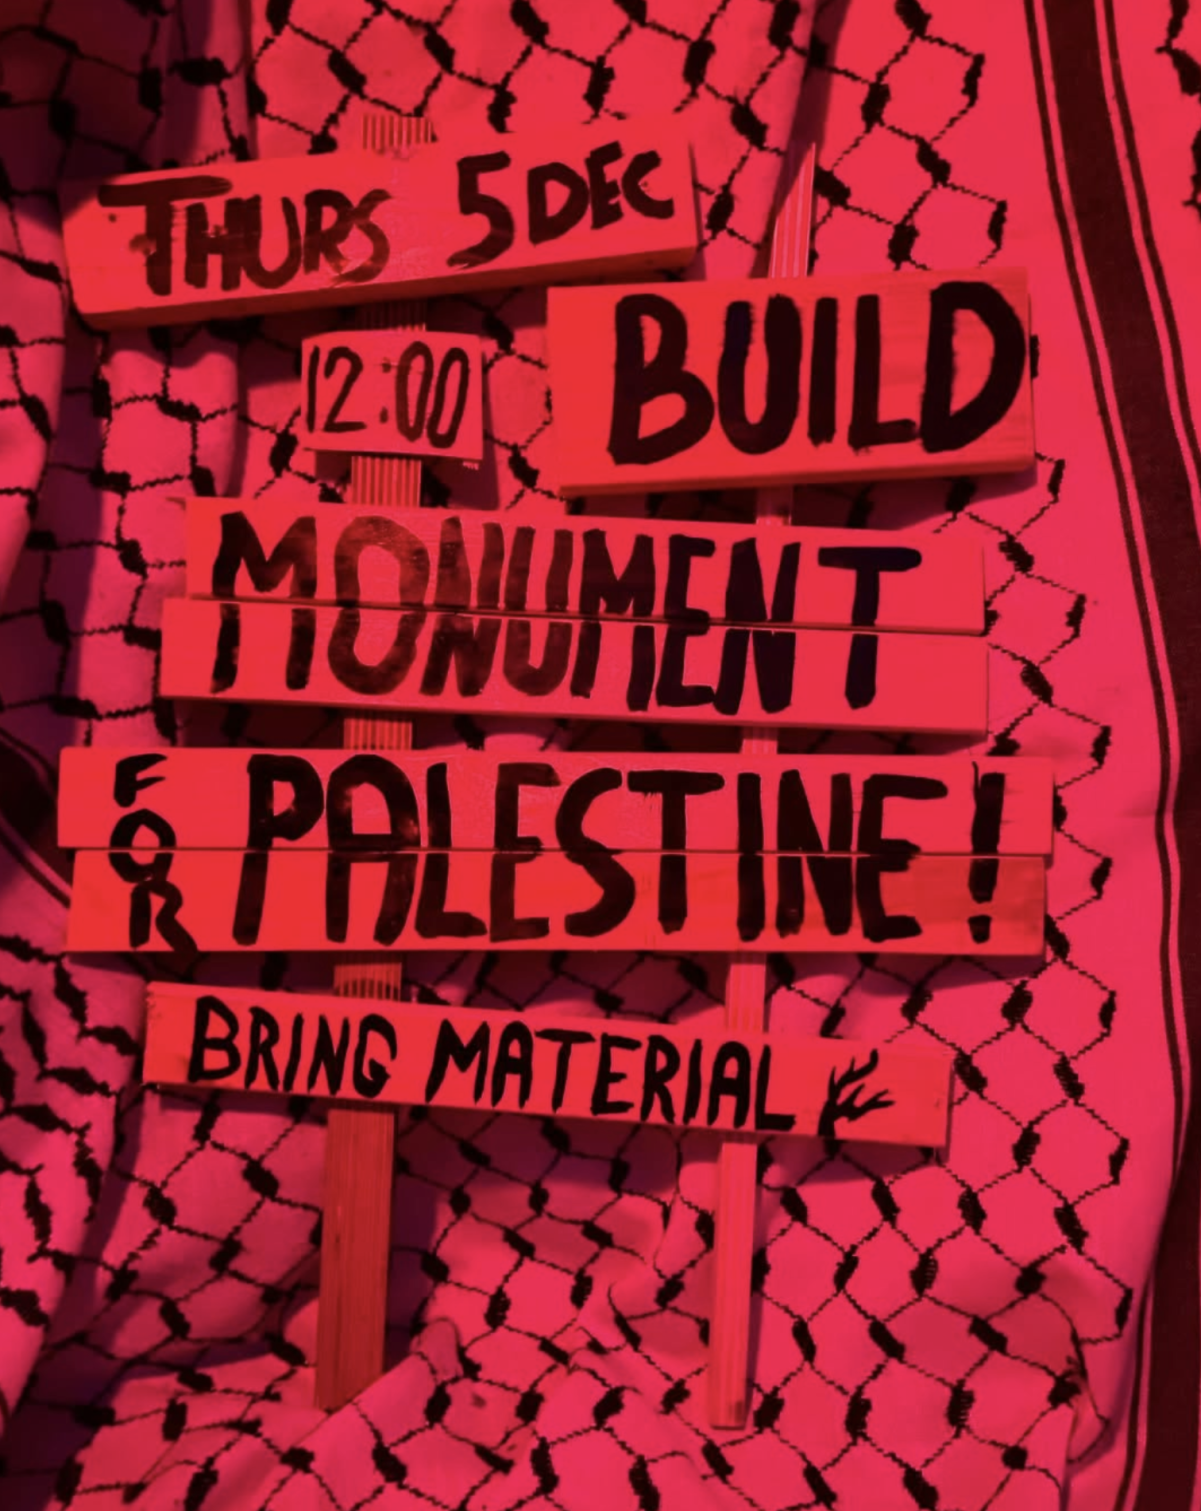 THURS 5 DEC
12:00
BUILD
MONUMENT
FOR PALESTINE!
BRING MATERIAL